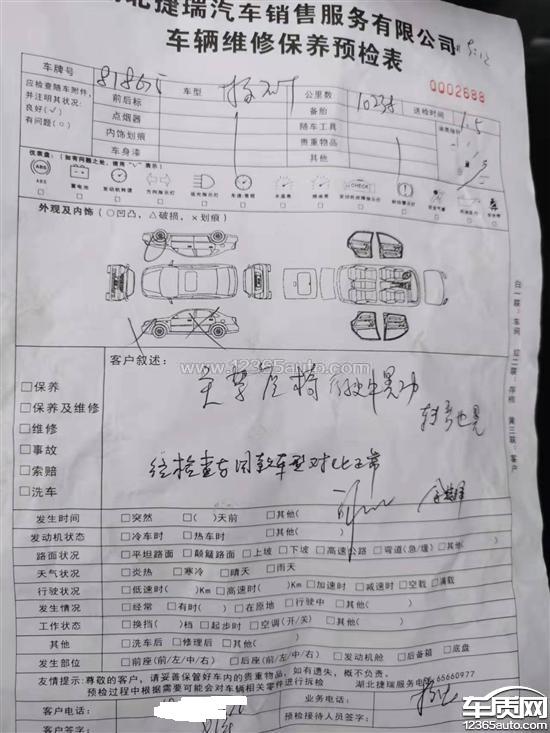 北捷瑞汽车销售服务有限公司
车辆维修保养预检表
0002688
车牌号 车型 公里数 送检时间
应检查随车附件,
并注明其状况:
良好(√)
有问题(○)
前后标 备胎
点烟器 随车工具
内饰划痕 贵重物品
车身漆 其他
仪表盘:(如有问题之处,请用"√"表示)
ABS
CHECK
ABS 蓄电池 发动机转速 方向指示灯 远光指示灯 车速/里程 水温表 燃油表 发动机故障指示灯
外观及内饰(○凹凸,△破损,×划痕)
www.12365auto.com
白一联:车间 红二联:存根 黄三联:客户
客户叙述:
主驾座椅 晃动
经检查与同款车型对比正常
□保养
□保养及维修
□维修
□事故
□索赔
□洗车
发生时间 □突然 □( )天前 □其他( )
发动机状态 □冷车时 □热车时 □其他( )
路面状况 □平坦路面 □颠簸路面 □上坡 □下坡 □高速公路 □弯道(急/缓) □其他( )
天气状况 □炎热 □寒冷 □晴天 □雨天
行驶状况 □低速时( )Km □高速时( )Km □加速时 □减速时 □空载 □满载
发生情况 □经常 □有时( ) □在原地 □行驶中 □其他( )
工作状态 □换挡( )档 □起步时 □空调(开/关) □其他( )
其他 □洗车后 □修理后 □其他( )
发生部位 □前座(前/左/中/右) □后座(前/左/中/右) □发动机舱 □后备箱 □底盘
友情提示:尊敬的客户,请妥善保管好车内的贵重物品,如有遗失,概不负责。
预检过程中根据需要可能会对车辆相关零件进行拆检 湖北捷瑞服务电话:65660977
客户电话: 业务电话:
客户签字: 预检接待人员签字:
车质网
12365auto.com